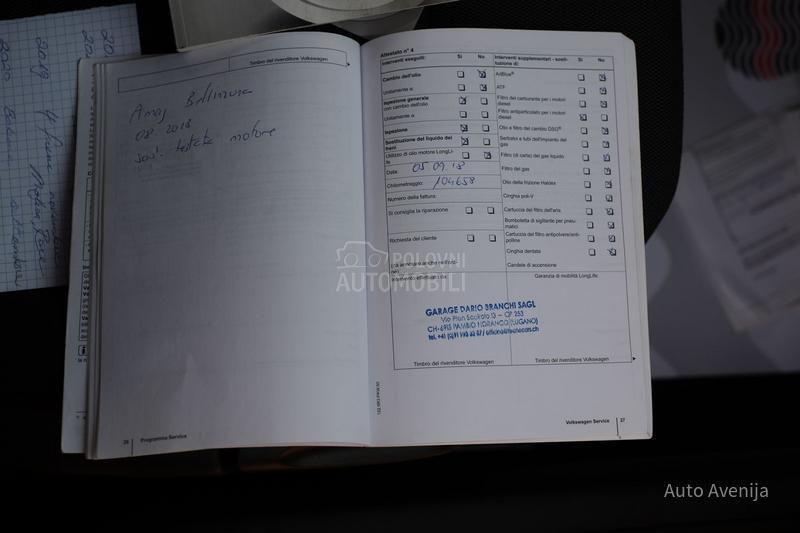 2019
Timbro del rivenditore Volkswagen
Amag Bellinzona
08.2018
sost. testata motore
26 Programma Service
Attestato n° 4
Interventi eseguiti: Sì No
Cambio dell'olio
Unitamente a:
Ispezione generale
con cambio dell'olio
Unitamente a:
Ispezione
Sostituzione del liquido dei
freni
Utilizzo di olio motore LongLi-
fe
Data: 05 09 18
Chilometraggio: 104658
Numero della fattura:
Si consiglia la riparazione
Richiesta del cliente
Interventi supplementari - sosti-
tuzione di: Sì No
AdBlue®
ATF
Filtro del carburante per i motori
diesel
Filtro antiparticolato per i motori
diesel
Olio e filtro del cambio DSG®
Serbatoi e tubi dell'impianto del
gas
Filtro (di carta) del gas liquido
Filtro del gas
Olio della frizione Haldex
Cinghia poli-V
Cartuccia del filtro dell'aria
Bomboletta di sigillante per pneu-
matici
Cartuccia del filtro antipolvere/anti-
polline
Cinghia dentata
Candele di accensione
Garanzia di mobilità LongLife:
GARAGE DARIO BRANCHI SAGL
CH-6915 PAMBIO NORANCO (LUGANO)
Timbro del rivenditore Volkswagen
Timbro del rivenditore Volkswagen
Volkswagen Service 27
POLOVNI
AUTOMOBILI
Auto Avenija